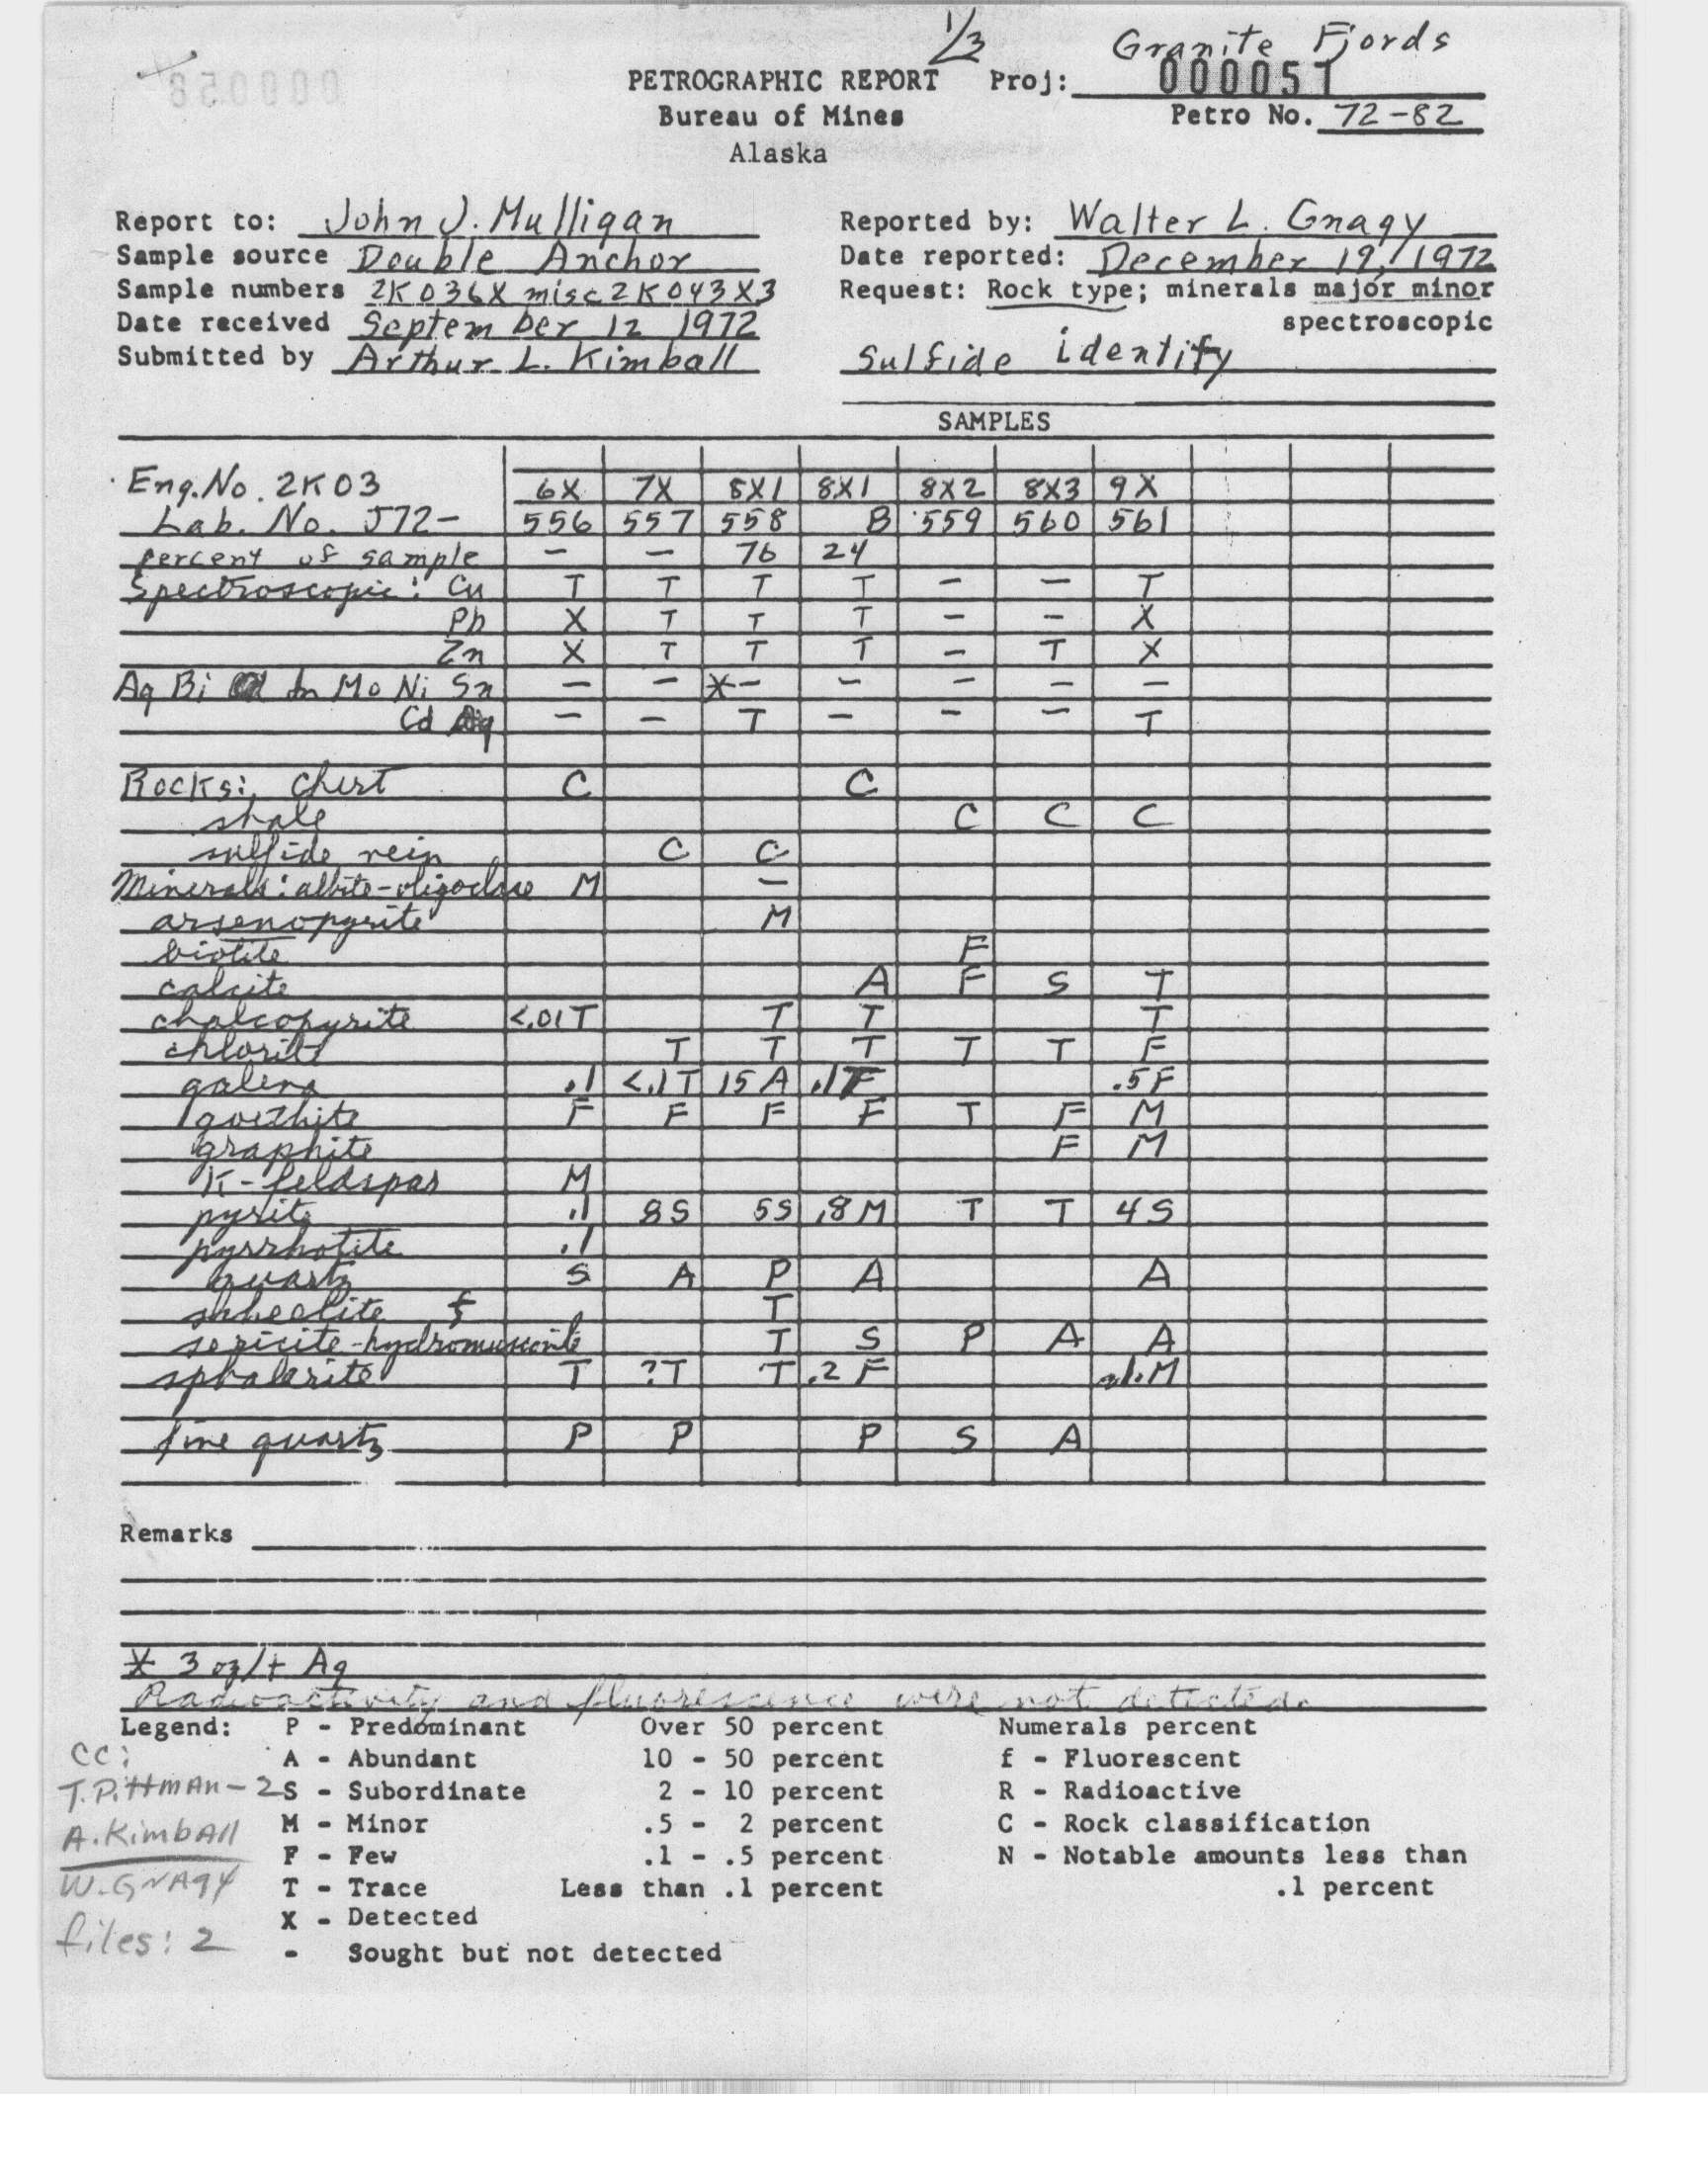 1/3 Granite Fjords
PETROGRAPHIC REPORT Proj: 000051
Bureau of Mines Petro No. 72-82
Alaska
Report to: John J. Mulligan Reported by: Walter L. Gnagy
Sample source Double Anchor Date reported: December 19, 1972
Sample numbers 2K036X misc 2K043X3 Request: Rock type; minerals major minor
Date received September 12 1972 spectroscopic
Submitted by Arthur L. Kimball Sulfide identify
SAMPLES
Eng. No. 2K03 6X 7X 8X1 8X1 8X2 8X3 9X
Lab. No. J72- 556 557 558 B 559 560 561
percent of sample - - 76 24
Spectroscopic: Cu T T T T - - T
Pb X T T T - - X
Zn X T T T - T X
Ag Bi In Mo Ni Sn - - *- - - - -
Cd - - T - - - T
Rocks: Chert C C
shale C C C
sulfide vein C C
Minerals: albite-oligoclase M -
arsenopyrite M
biotite F
calcite A F S T
chalcopyrite <.01T T T T
chlorite T T T T T F
galena .1 <.1T 15A .1F .5F
goethite F F F F T F M
graphite F M
K-feldspar M
pyrite .1 8S 5S .8M T T 4S
pyrrhotite .1
quartz S A P A A
sheelite f T
sericite-hydromuscovite T S P A A
sphalerite T ?T T .2F M
fine quartz P P P S A
Remarks
* 3 oz/t Ag
Radioactivity and fluorescence were not detected.
Legend: P - Predominant Over 50 percent Numerals percent
CC: A - Abundant 10 - 50 percent f - Fluorescent
T. Pittman-2 S - Subordinate 2 - 10 percent R - Radioactive
A. Kimball M - Minor .5 - 2 percent C - Rock classification
F - Few .1 - .5 percent N - Notable amounts less than
W. Gnagy T - Trace Less than .1 percent .1 percent
X - Detected
files: 2 - Sought but not detected